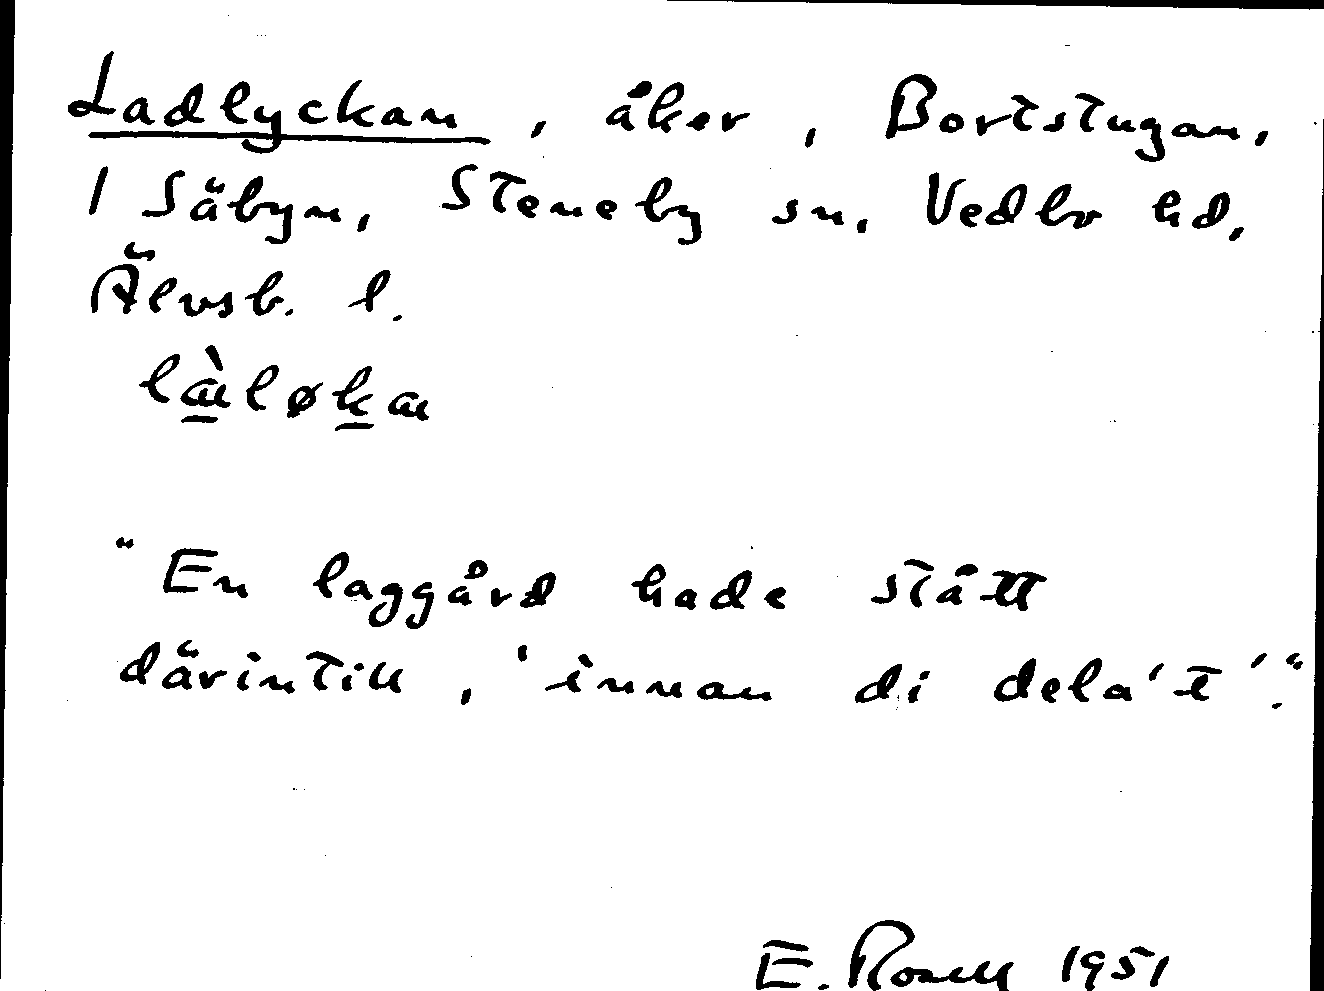 Ladlyckan, åker, Bortstugan,
1 Säbyn, Steneby sn, Vedbo hd,
Älvsb. l.
læ̠̀løk̠æ
"En laggård hade stått
därintill, 'innan di dela't'."
E. Rosell 1951